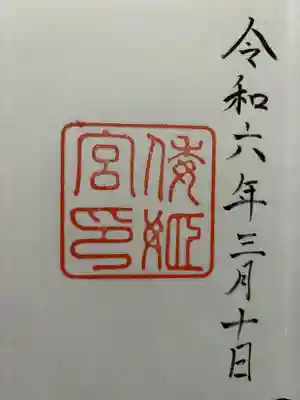 令和六年三月十日
倭姫
宮印